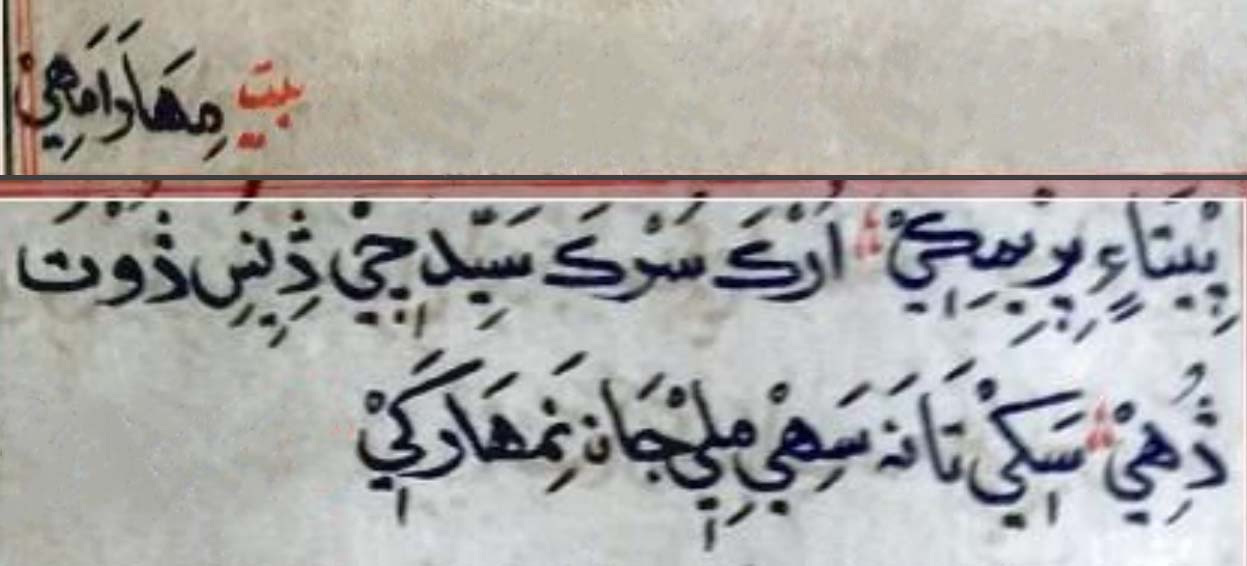 بيت مِهَارَامَاهِيْ
پِيْتَاءٍ پِرِيْمکِيْ ؞ اُرْکَ سَرْکَ سَيِّدِ جِيْ ڎِنِسِ ڎُوْتَ
ڎُهِيْ ؞ سَکِيْ تَانَہ سَهِيْ مِلِيْ جَانہ نِمَهَارَکِيْ